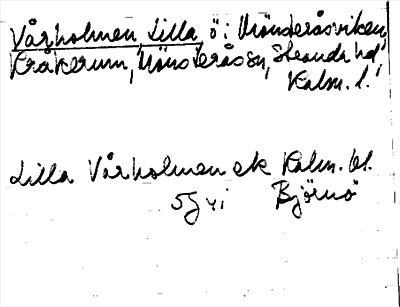 Vårholmen, Lilla, ö i Mönsteråsviken,
Kråkerum, Mönsterås sn, Strandа hd,
Kalm. l.
Lilla Vårholmen ek Kalm. bl.
5G Björnö